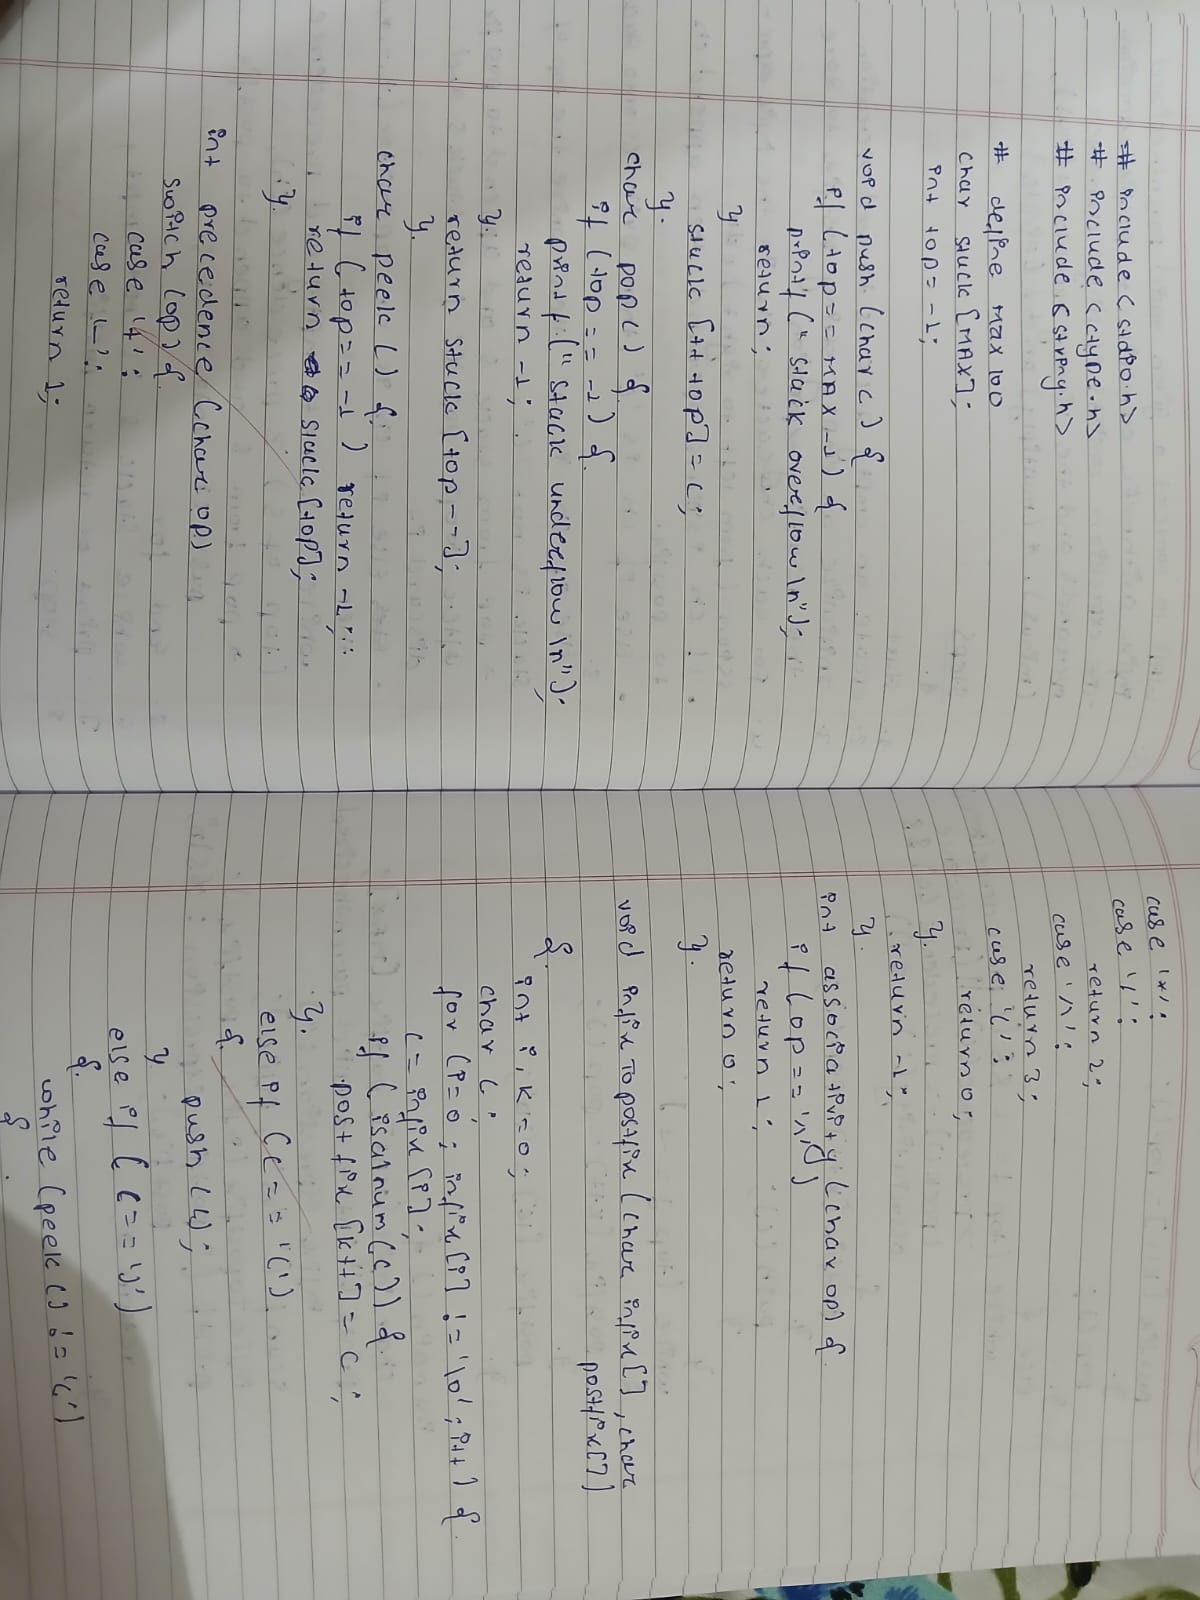 # include <stdio.h>
# include <ctype.h>
# include <string.h>
# define max 100
char stack [MAX];
int top = -1;
void push (char c) {
if (top == MAX -1) {
printf (" stack overflow \n");
return;
}
stack [++ top] = c;
}.
char pop () {
if (top == -1) {
printf (" stack underflow \n");
return -1;
}.
return stack [top --];
}.
char peek () {
if (top == -1) return -1;
return stack [top];
}.
int precedence (char op)
switch (op) {
case '+':
case '-':
return 1;
case '*':
case '/':
return 2;
case '^':
return 3;
case '(':
return 0;
}.
return -1;
}.
int associativity (char op) {
if (op == '^')
return 1;
return 0;
}.
void infix To postfix (char infix [], char
postfix [])
{.
int i, k = 0;
char c;
for (i=0; infix [i] != '\0'; i++) {
c = infix [i];
if (isalnum (c)) {
postfix [k++] = c;
}.
else if (c == '(')
{.
push (c);
}
else if (c == ')')
{.
while (peek () != '(')
{